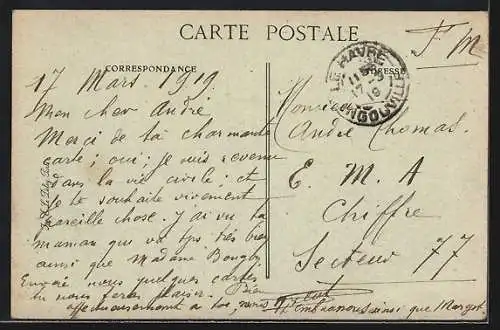 CARTE POSTALE
F M
CORRESPONDANCE
ADRESSE
LE HAVRE
17 - 3
19
17 Mars 1919.
Mon cher André
Merci de ta charmante
carte ; oui, je suis revenu
dans la vie civile ; et
je te souhaite vivement
pareille chose. J'ai vu ta
maman qui va tjs. très bien
ainsi que Madame
nous quelques cartes
tu nous feras plaisir. Bien
affectueusement à toi,
t'embrassons ainsi que Margot
Monsieur
André Thomas.
E. M. A
Chiffre
Secteur 77